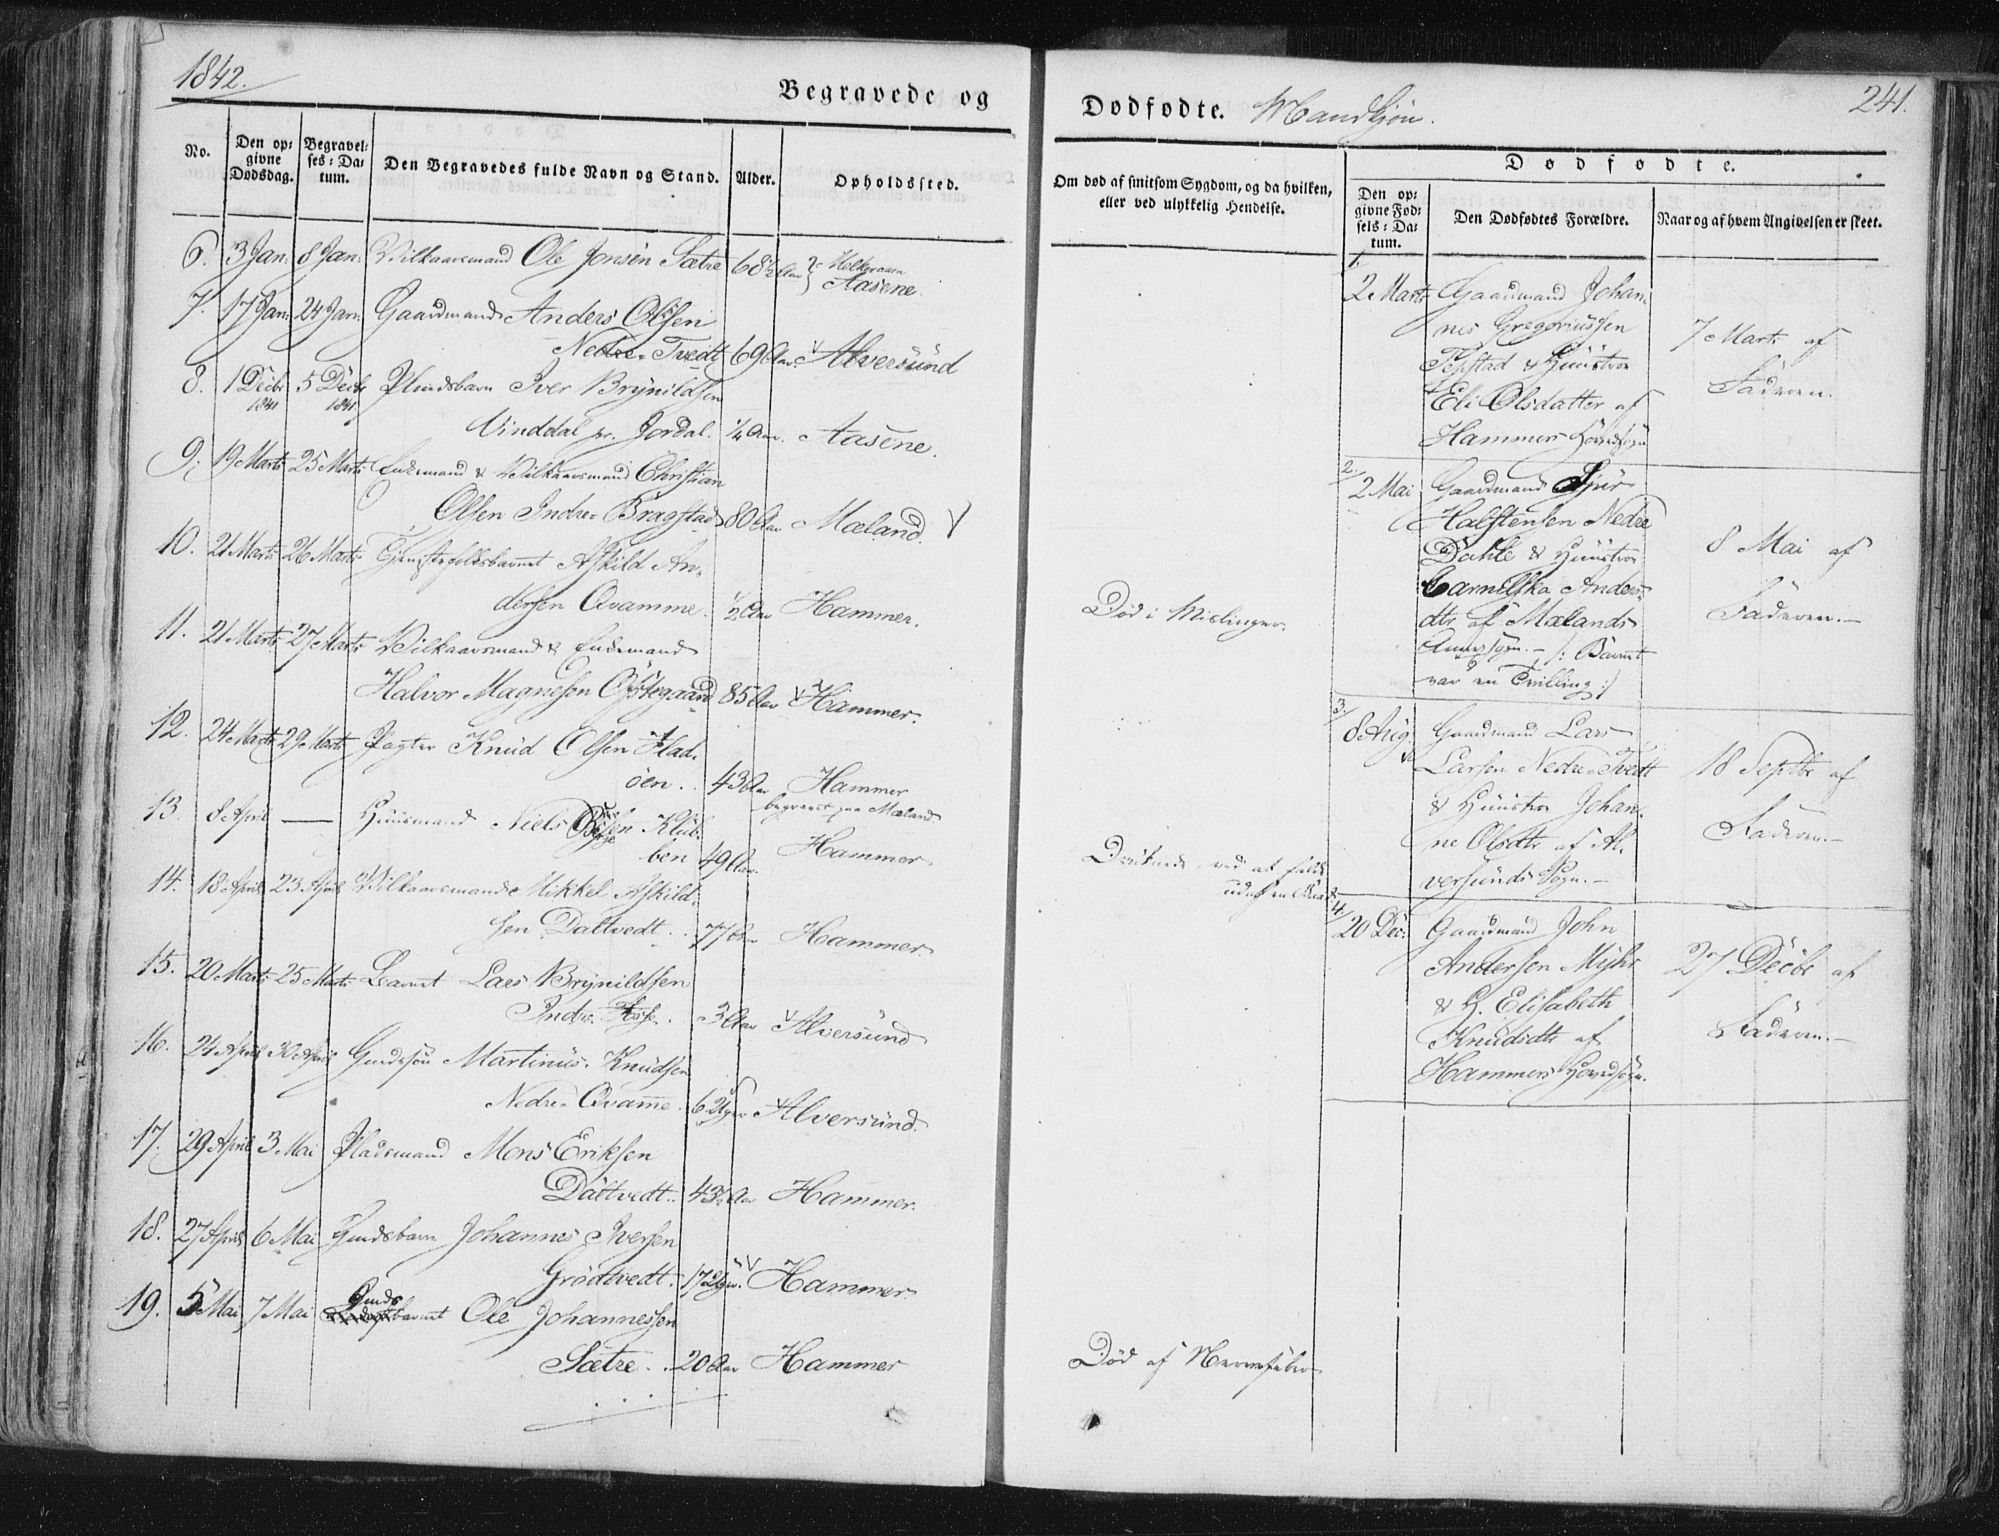 1842.
Begravede og
No.
Den opgivne Dødsdag.
Begravelses-Datum.
Den Begravedes fulde Navn og Stand.
Alder.
Opholdssted.
6. 3 Jan. 8 Jan. Vilkaarsmand Ole Jonsen Sætre 68½ Aar
Aasene.
7. 17 Jan. 24 Jan. Gaardmand Anders Olsen
Nedre Tvedt 69 Aar. Alversund
8. 1 Decbr 5 Decbr Iver Brynildsen
1841 1841
Vinddal pr. Jordal. ¼ Aar. Aasene.
9. 19 Marts 25 Marts Enkemand & Vilkaarsmand Christian
Olsen Indre Bragstad 80 Aar Mæland.
10. 21 Marts 26 Marts Askild An-
dersen Qvamme. ½ Aar Hammer.
11. 21 Marts 27 Marts Vilkaarsmand & Enkemand
Halvor Magnesen 85 Aar Hammer.
12. 24 Marts 29 Marts Pagter Knud Olsen Flad-
öen. 43 Aar Hammer
begravet paa Mæland
13. 8 April — Huusmand Niels
ben 49 Aar. Hammer
14. 18 April 23 April Vilkaarsmand Mikkel Askild-
sen Dattvedt. 77 Aar Hammer.
15. 20 Marts 25 Marts Barnet Lars Brynildsen
Indre 3 Aar Alversund
16. 24 April 30 April Martinus Knudsen
Nedre Qvamme. 6 Uger Alversund.
17. 29 April 3 Mai Pladsmand Mons Eriksen
Dattvedt. 43½ Aar Hammer.
18. 27 April 6 Mai Johannes Iversen
Grödtvedt. 17 Uger. Hammer.
19. 5 Mai 7 Mai barnet Ole Johannessen
Sætre. 20 Aar Hammer
Dødfødte. Mandkjøn.
241.
Om død af smitsom Sygdom, og da hvilken,
eller ved ulykkelig Hendelse.
Dødfødte.
Den opgivne Fødsels-Datum.
Den Dødfødtes Forældre.
Naar og af hvem Angivelsen er skeet.
Død i Mislinger.
Druknede, ved at falde
ud af en
Død af Nervefeber
1.
2 Marts Gaardmand Johan-
nes Gregoriussen
& Huustro
Eli Olsdatter af
Hammers Hovedsogn
7 Marts af
Faderen.
2.
2 Mai Gaardmand Sjur
Halstensen Nedre
Dahle & Huustro
Anders-
dtr af Mælands
Annexsogn. — /: Barnet
var en Tvilling :/
8 Mai af
Faderen. —
3.
8 Aug. Gaardmand Lars
Larsen Nedre Tvedt
& Huustro Johan-
ne Olsdtr af Al-
versunds Sogn. —
18 Septbr af
Faderen. —
4.
20 Dec. Gaardmand John
Andersen Myhr
& H. Elisabeth
Knudsdtr af
Hammers Hovedsogn.
27 Decbr af
Faderen. —